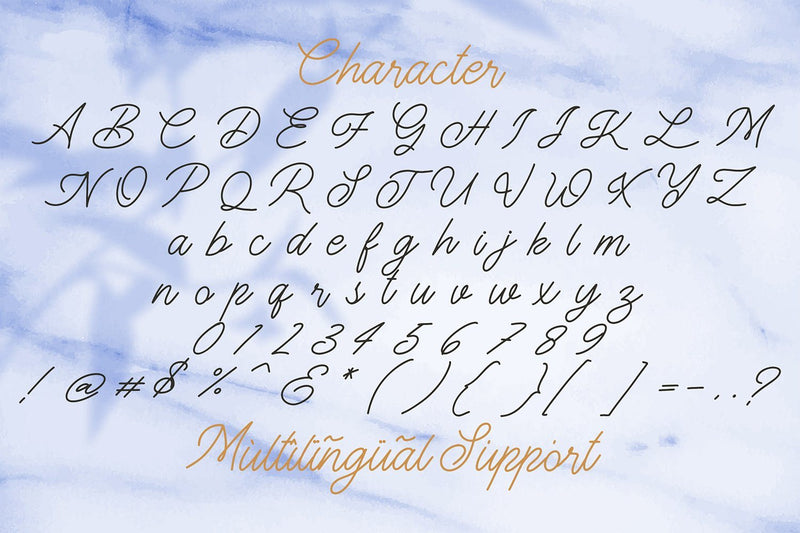 Character
A B C D E F G H I J K L M
N O P Q R S T U V W X Y Z
a b c d e f g h i j k l m
n o p q r s t u v w x y z
0 1 2 3 4 5 6 7 8 9
! @ # $ % ^ & * ( ) { } [ ] = - . . ?
Mùltîlïñgüãl Sùppört